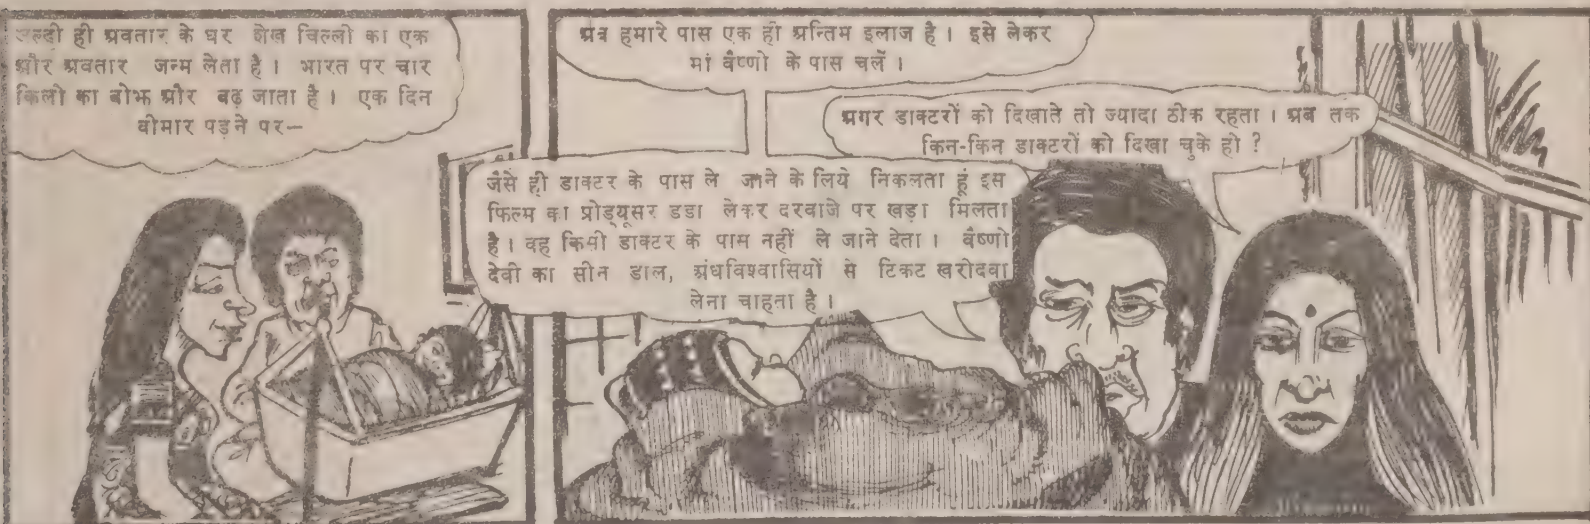 जल्दी ही अवतार के घर शेख चिल्ली का एक
और अवतार जन्म लेता है। भारत पर चार
किलो का बोझ और बढ़ जाता है। एक दिन
बीमार पड़ने पर—
अब हमारे पास एक ही अन्तिम इलाज है। इसे लेकर
मां वैष्णो के पास चलें।
अगर डाक्टरों को दिखाते तो ज्यादा ठीक रहता। अब तक
किन-किन डाक्टरों को दिखा चुके हो?
जैसे ही डाक्टर के पास ले जाने के लिये निकलता हूं इस
फिल्म का प्रोड्यूसर डंडा लेकर दरवाजे पर खड़ा मिलता
है। वह किसी डाक्टर के पास नहीं ले जाने देता। वैष्णो
देवी का सीन डाल, अंधविश्वासियों से टिकट खरीदवा
लेना चाहता है।